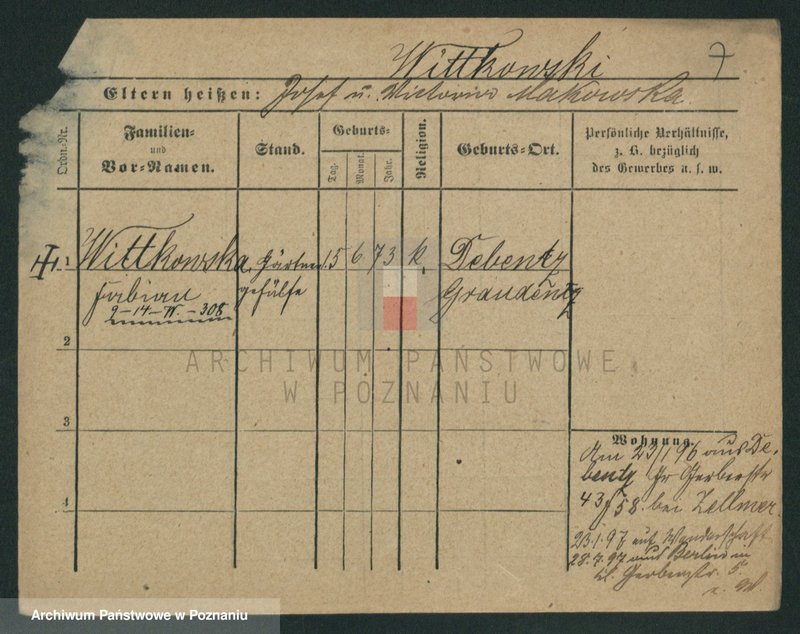 Wittkowski 7
Eltern heißen: Josef u. Victoria Makowska.
Ordn.-Nr.
Familien-
und
Vor-Namen.
Stand.
Geburts-
Tag.
Monat.
Jahr.
Religion.
Geburts-Ort.
Persönliche Verhältnisse,
z. B. bezüglich
des Gewerbes u. s. w.
1 Wittkowska Gärtner 15 6 73 k. Debentz
Fabian gehülfe Graudentz
9-14-IV.-308
2
3
4
ARCHIWUM PAŃSTWOWE
W POZNANIU
Wohnung.
Am 23/1 96 aus De-
bentz Gr Gerberstr
43 58. bei Zellmer.
23.1.97 auf Wanderschaft
28.7.97 aus Berlin
kl. Gerberstr. 5.
Archiwum Państwowe w Poznaniu